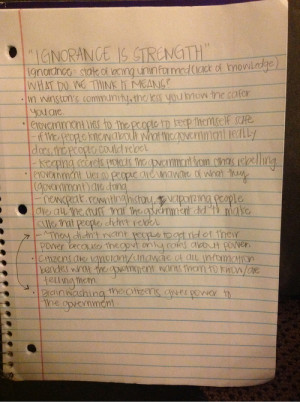 "IGNORANCE IS STRENGTH"
Ignorance- state of being uninformed (lack of knowledge)
WHAT DO WE THINK IT MEANS?
• In winston's community, the less you know the safer
you are.
• Government lies to the people to keep themself safe
- if the people knew about what the government really
does the people could rebel.
- keeping secrets protects the government from others rebelling.
• Government lies so people are unaware of what they
(government) are doing
- newspeak, rewriting history, vaporizing people
are all the stuff that the government did to make
sure that people didn't rebel
- They didn't want people to get rid of their
power because the govt only cares about power.
• citizens are ignorant/unaware of all information
besides what the government wants them to know/are
telling them.
• Brainwashing the citizens gives power to
the government.